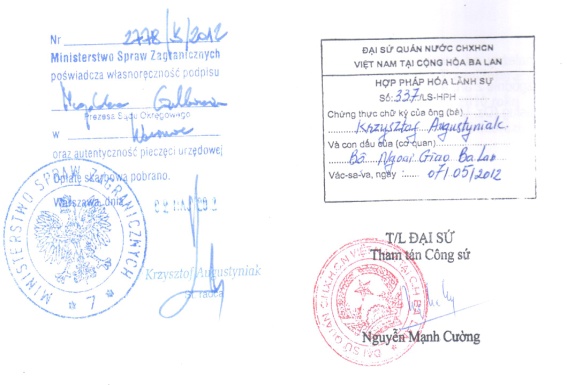 Nr 2778/K/2012
Ministerstwo Spraw Zagranicznych
poświadcza własnoręczność podpisu
Magdalena
Prezesa Sądu Okręgowego
w Warszawie
oraz autentyczność pieczęci urzędowej
Opłatę skarbową pobrano.
Warszawa, dnia
Krzysztof Augustyniak
St. radca
MINISTERSTWO SPRAW ZAGRANICZNYCH
* 7 *
ĐẠI SỨ QUÁN NƯỚC CHXHCN
VIỆT NAM TẠI CỘNG HÒA BA LAN
HỢP PHÁP HÓA LÃNH SỰ
Số: 337/LS-HPH
Chứng thực chữ ký của ông (bà)
Krzysztof Augustyniak
Và con dấu của (cơ quan)
Bộ Ngoại Giao Ba Lan
Vác-sa-va, ngày : 07/05/2012
T/L ĐẠI SỨ
Tham tán Công sứ
Nguyễn Mạnh Cường